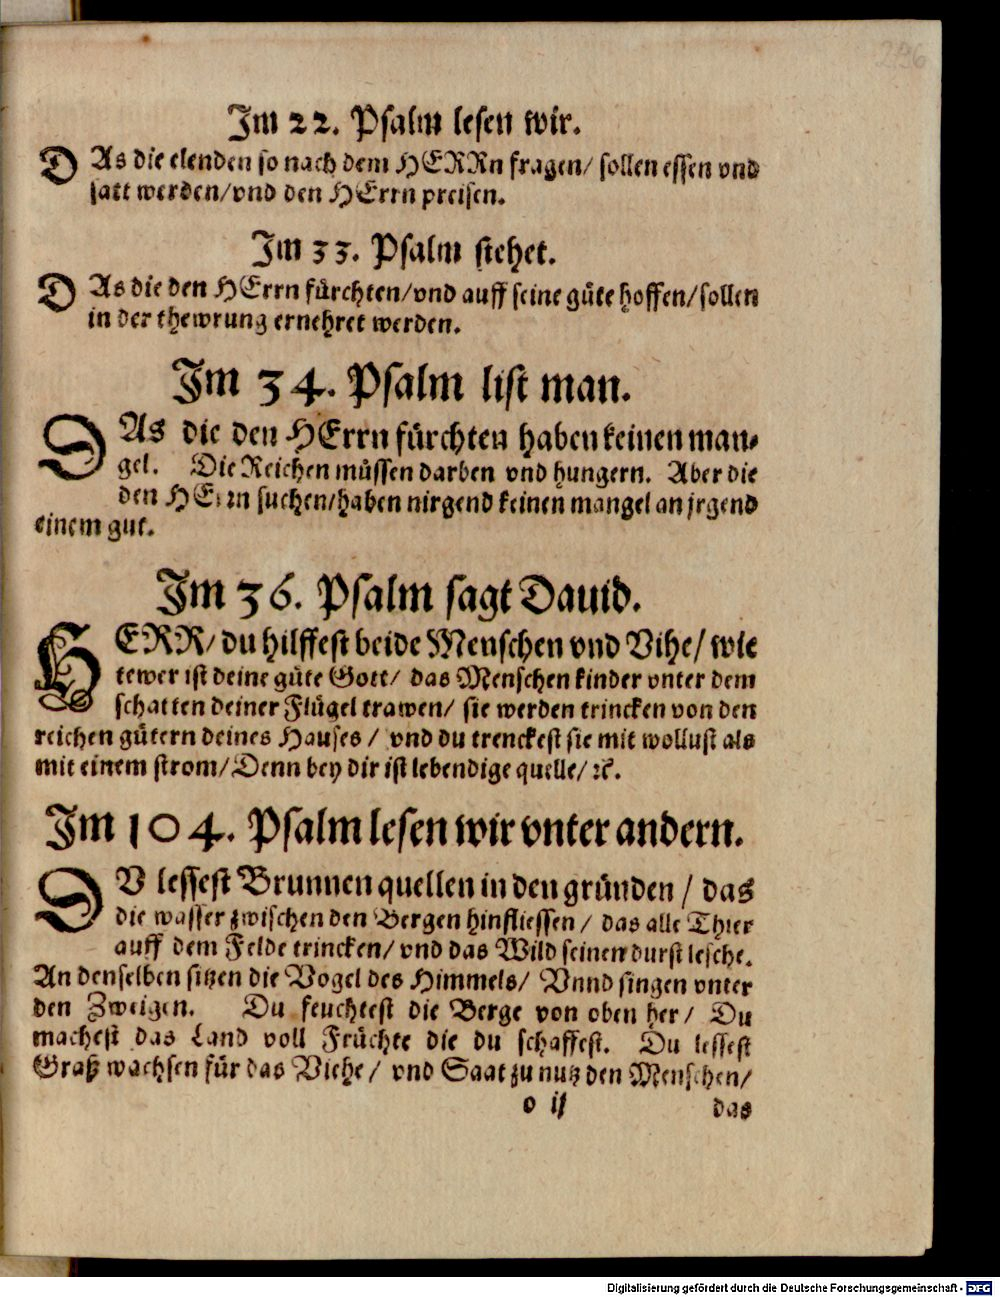 296
Im 22. Psalm lesen wir.
DAs die elenden so nach dem HERRn fragen/ sollen essen vnd
satt werden/vnd den HErrn preisen.
Im 33. Psalm stehet.
DAs die den HErrn fürchten/vnd auff seine güte hoffen/sollen
in der thewrung ernehret werden.
Im 34. Psalm list man.
DAs die den HErrn fürchten haben keinen man-
gel. Die Reichen müssen darben vnd hungern. Aber die
den HErrn suchen/haben nirgend keinen mangel an jrgend
einem gut.
Im 36. Psalm sagt Dauid.
HERR/ du hilffest beide Menschen vnd Vihe/ wie
tewer ist deine güte Gott/ das Menschen kinder vnter dem
schatten deiner Flügel trawen/ sie werden trincken von den
reichen gütern deines Hauses / vnd du trenckest sie mit wollust als
mit einem strom/Denn bey dir ist lebendige quelle/ ꝛc.
Im 104. Psalm lesen wir vnter andern.
DV lessest Brunnen quellen in den gründen / das
die wasser zwischen den Bergen hinfliessen / das alle Thier
auff dem Felde trincken/ vnd das Wild seinen durst lesche.
An denselben sitzen die Vogel des Himmels/ Vnnd singen vnter
den Zweigen. Du feuchtest die Berge von oben her/ Du
machest das Land voll Früchte die du schaffest. Du lessest
Graß wachsen für das Viehe / vnd Saat zu nutz den Menschen/
o ij das
Digitalisierung gefördert durch die Deutsche Forschungsgemeinschaft - DFG